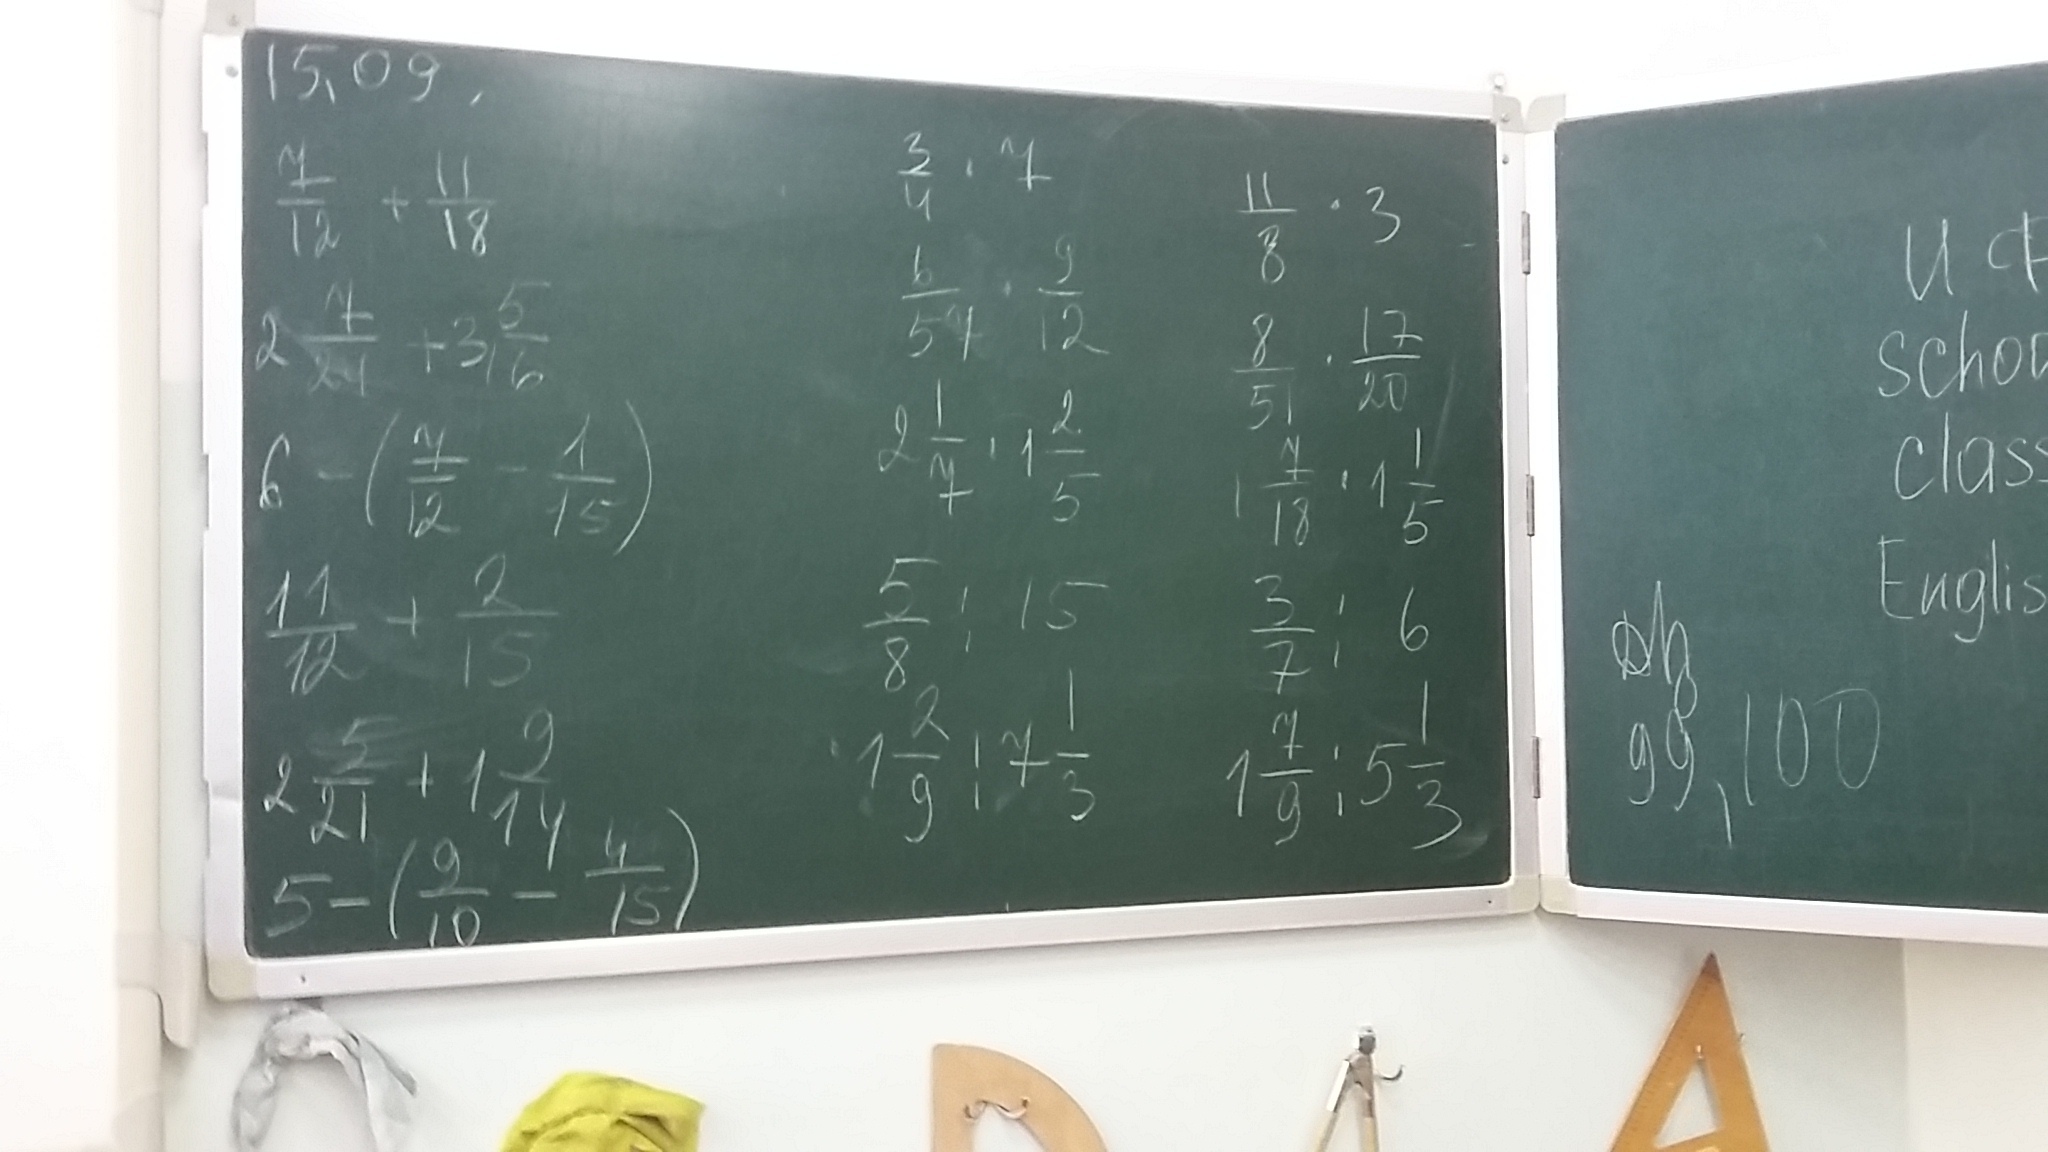 15.09.
7/12 + 11/18
2 7/24 + 3 5/16
6 - (7/12 - 1/15)
11/12 + 2/15
2 5/21 + 1 9/14
5 - (9/10 - 4/15)
3/4 · 7
6/57 · 9/12
2 1/7 · 1 2/5
5/8 : 15
1 2/9 : 7 1/3
11/8 · 3
8/51 · 17/20
1 7/18 · 1 1/5
3/7 : 6
1 7/9 : 5 1/3
99, 100